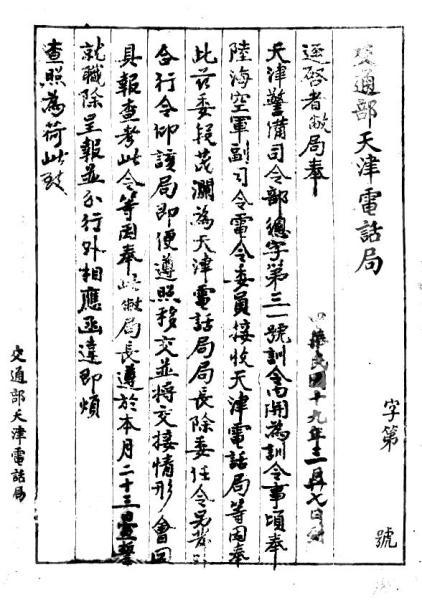 交通部天津電話局
字第 號
中華民國十九年三月廿七日
逕啓者敝局奉
天津警備司令部總字第三一號訓令內開為訓令事頃奉
陸海空軍副司令電令委員接收天津電話局等因奉
此茲委段茂瀾為天津電話局局長除委任令另發外
合行令仰該局即便遵照移交並將交接情形會同
具報查考此令等因奉此敝局長遵於本月二十三日宣誓
就職除呈報並分行外相應函達即煩
查照為荷此致
交通部天津電話局